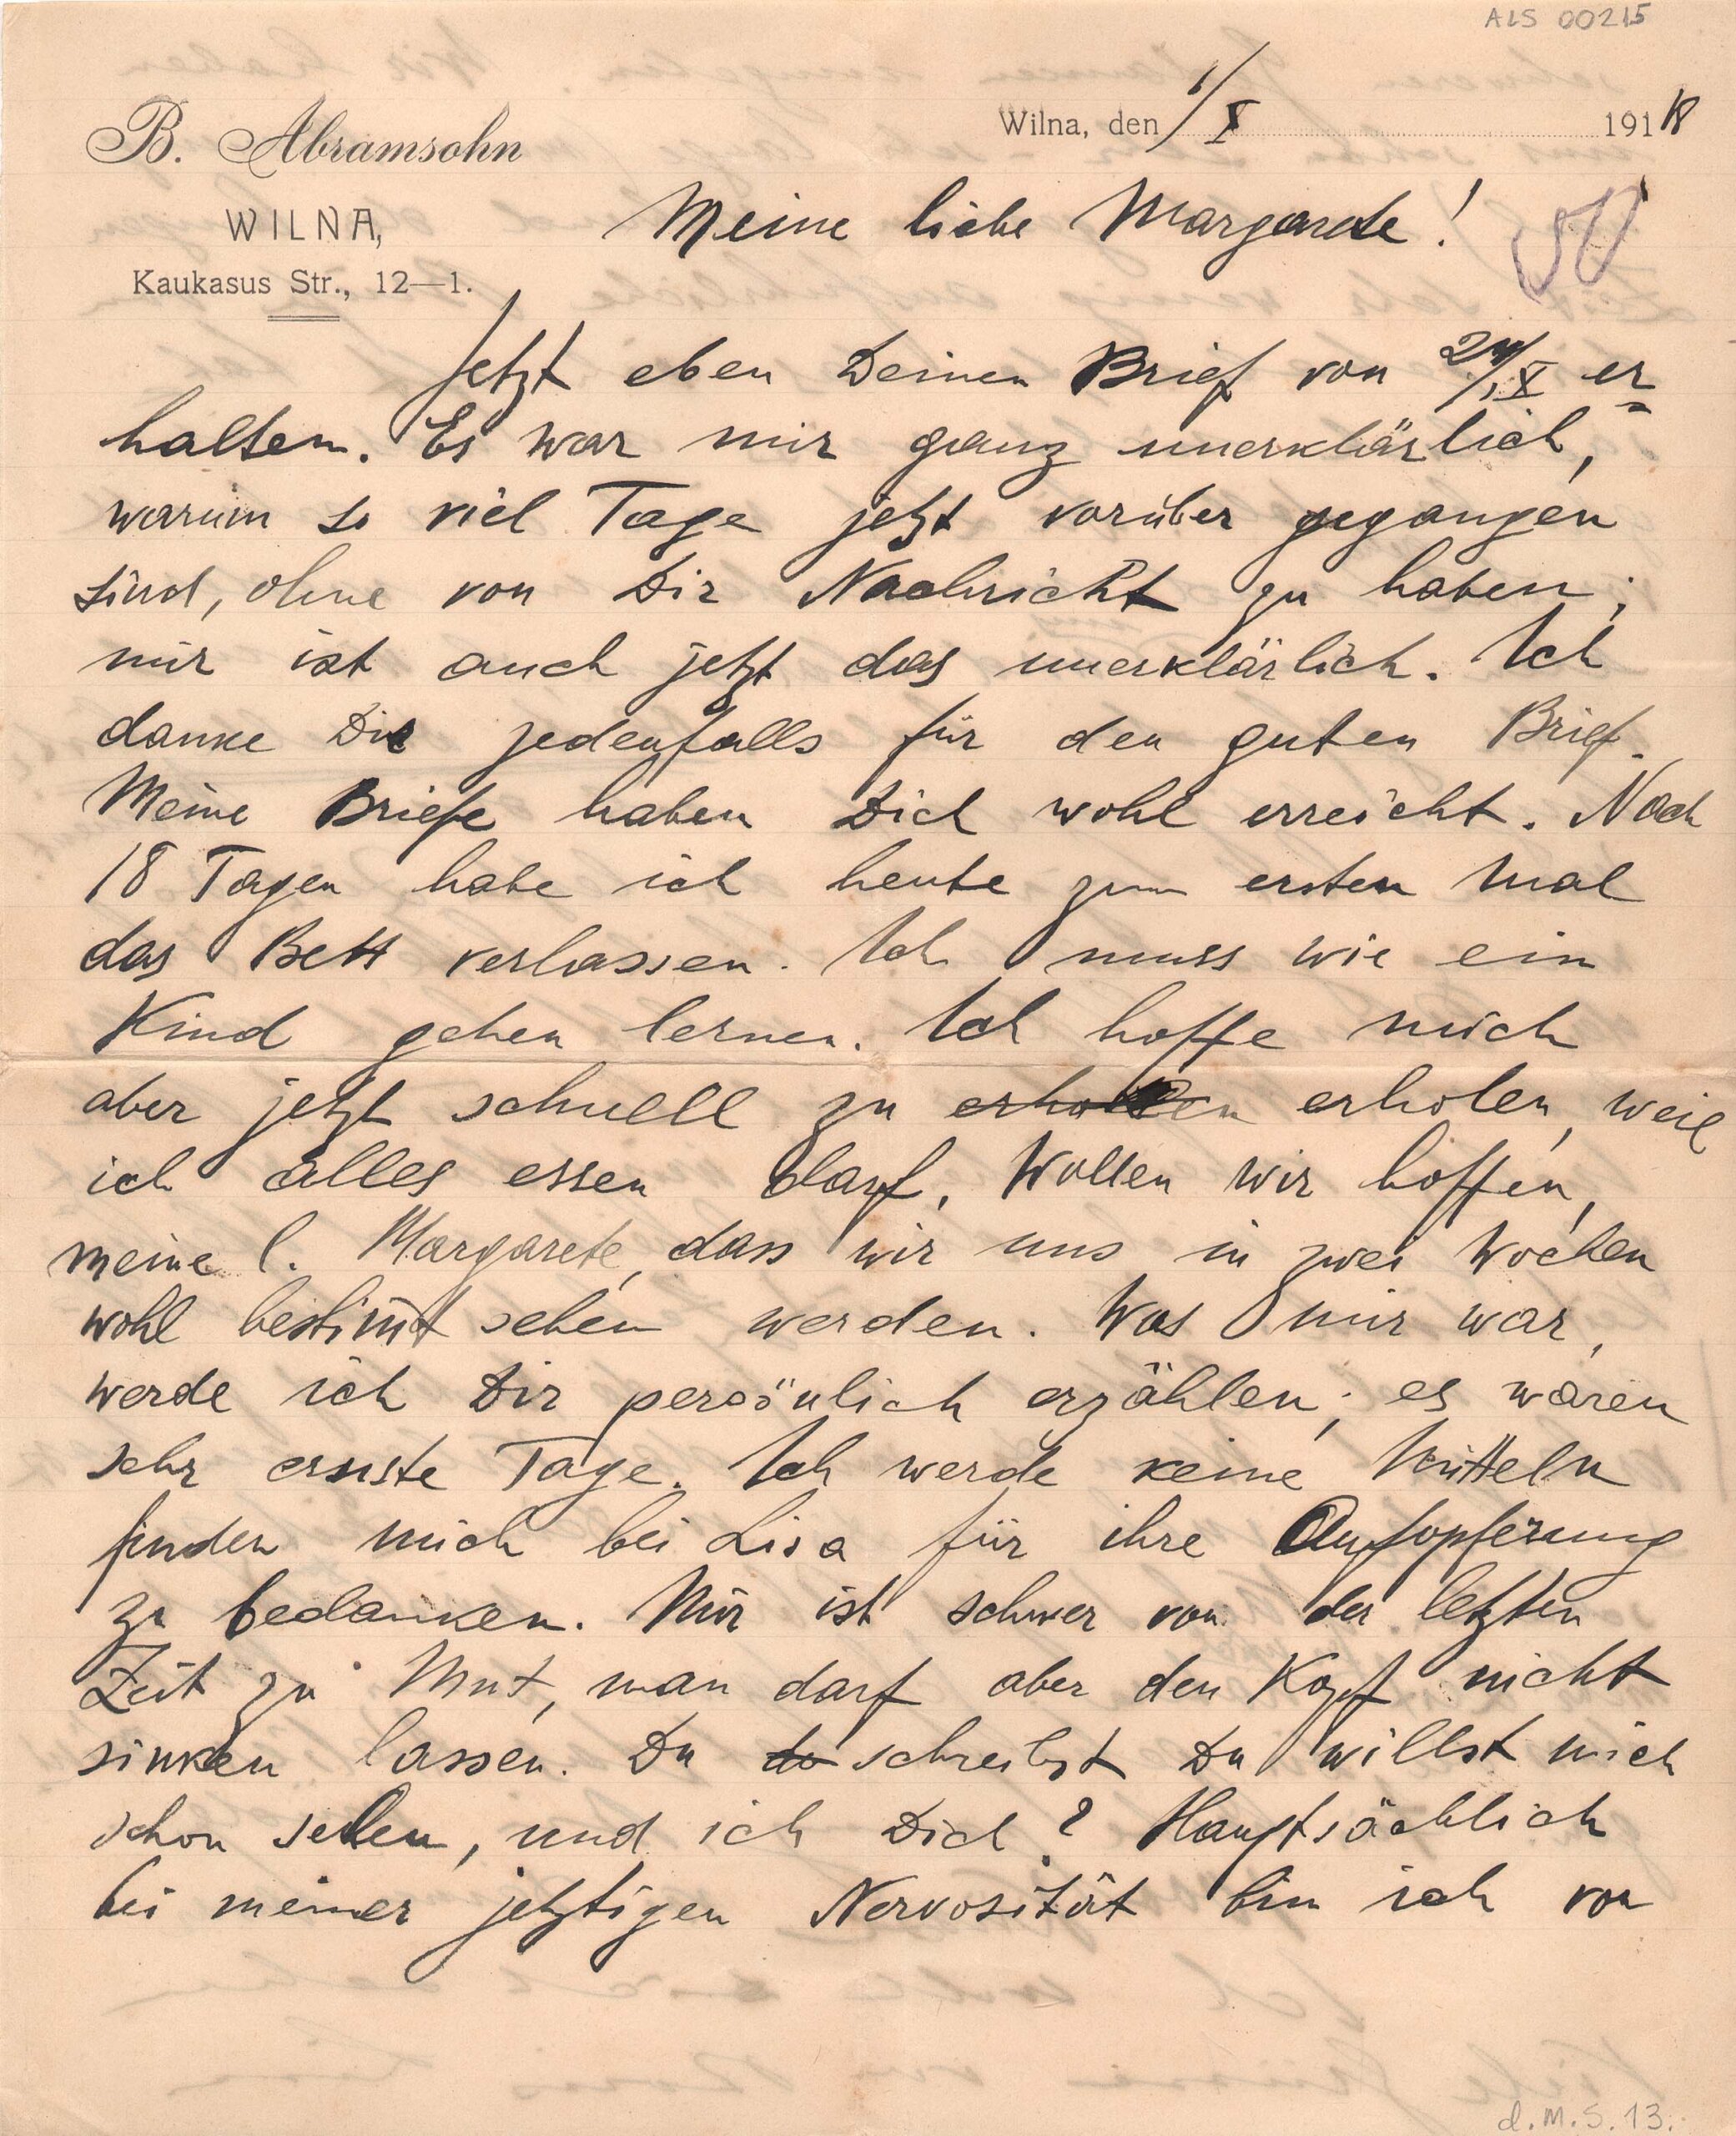 ALS 00215
B. Abramsohn
WILNA,
Kaukasus Str., 12—1.
Wilna, den 1/X 1918
Meine liebe Margarete!
50
Jetzt eben Deinen Brief von 24/IX er-
halten. Es war mir ganz unerklärlich,
warum so viel Tage jetzt vorüber gegangen
sind, ohne von Dir Nachricht zu haben;
mir ist auch jetzt das unerklärlich. Ich
danke Dir jedenfalls für den guten Brief.
Meine Briefe haben Dich wohl erreicht. Nach
18 Tagen habe ich heute zum ersten Mal
das Bett verlassen. Ich muss wie ein
Kind gehen lernen. Ich hoffe mich
aber jetzt schnell zu erholen erholen, weil
ich alles essen darf. Wollen wir hoffen,
meine l. Margarete, dass wir uns in zwei Wochen
wohl bestim̄t sehen werden. Was mir war,
werde ich Dir persönlich erzählen; es waren
sehr ernste Tage. Ich werde keine Mitteln
finden mich bei Lisa für ihre Aufopferung
zu bedanken. Mir ist schwer von der letzten
Zeit zu Mut, man darf aber den Kopf nicht
sinken lassen. Du do schreibst Du willst mich
schon sehen, und ich Dich? Hauptsächlich
bei meiner jetztigen Nervosität bin ich von
d.M.S.13.